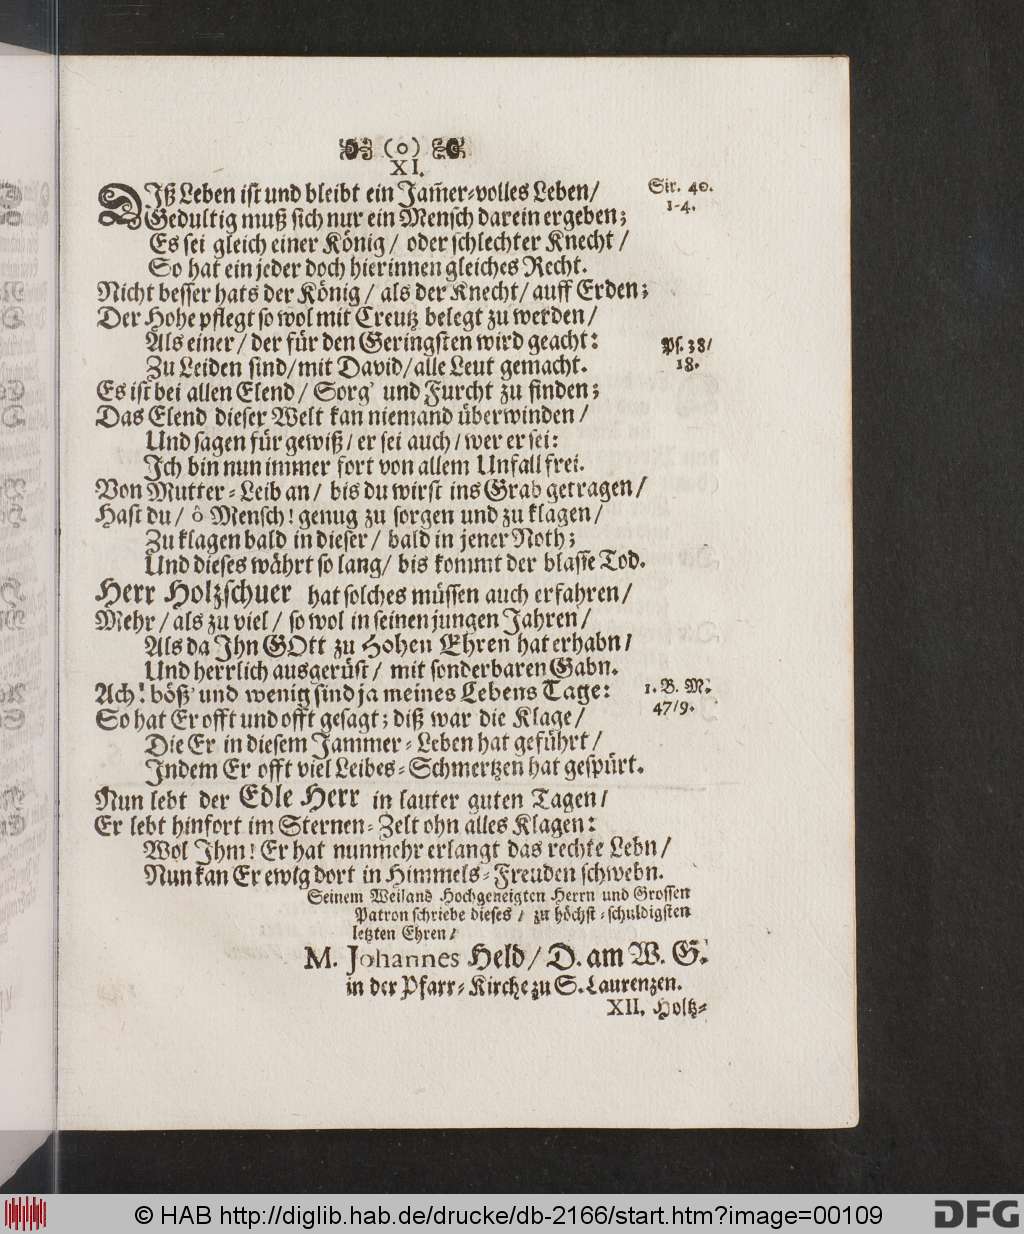 (o)
XI.
DIß Leben ist und bleibt ein Jam̃er-volles Leben/
Sir. 40.
1-4.
Gedultig muß sich nur ein Mensch darein ergeben;
Es sei gleich einer König/ oder schlechter Knecht/
So hat ein jeder doch hierinnen gleiches Recht.
Nicht besser hats der König/ als der Knecht/ auff Erden;
Der Hohe pflegt so wol mit Creutz belegt zu werden/
Als einer/ der für den Geringsten wird geacht:
Ps. 38/
18.
Zu Leiden sind/ mit David/ alle Leut gemacht.
Es ist bei allen Elend/ Sorg' und Furcht zu finden;
Das Elend dieser Welt kan niemand überwinden/
Und sagen für gewiß/ er sei auch/ wer er sei:
Ich bin nun immer fort von allem Unfall frei.
Von Mutter-Leib an/ bis du wirst ins Grab getragen/
Hast du/ ô Mensch! genug zu sorgen und zu klagen/
Zu klagen bald in dieser/ bald in jener Noth;
Und dieses währt so lang/ bis kommt der blasse Tod.
Herr Holzschuer hat solches müssen auch erfahren/
Mehr/ als zu viel/ so wol in seinen jungen Jahren/
Als da Ihn GOtt zu Hohen Ehren hat erhabn/
Und herrlich ausgerüst/ mit sonderbaren Gabn.
Ach! böß' und wenig sind ja meines Lebens Tage:
1. B. M.
47/9.
So hat Er offt und offt gesagt; diß war die Klage/
Die Er in diesem Jammer-Leben hat geführt/
Indem Er offt viel Leibes-Schmertzen hat gespürt.
Nun lebt der Edle Herr in lauter guten Tagen/
Er lebt hinfort im Sternen-Zelt ohn alles Klagen:
Wol Ihm! Er hat nunmehr erlangt das rechte Lebn/
Nun kan Er ewig dort in Himmels-Freuden schwebn.
Seinem Weiland Hochgeneigten Herrn und Grossen
Patron schriebe dieses/ zu höchst-schuldigsten
letzten Ehren/
M. Johannes Held/ D. am W. G.
in der Pfarr-Kirche zu S. Laurenzen.
XII. Holtz-
© HAB http://diglib.hab.de/drucke/db-2166/start.htm?image=00109
DFG